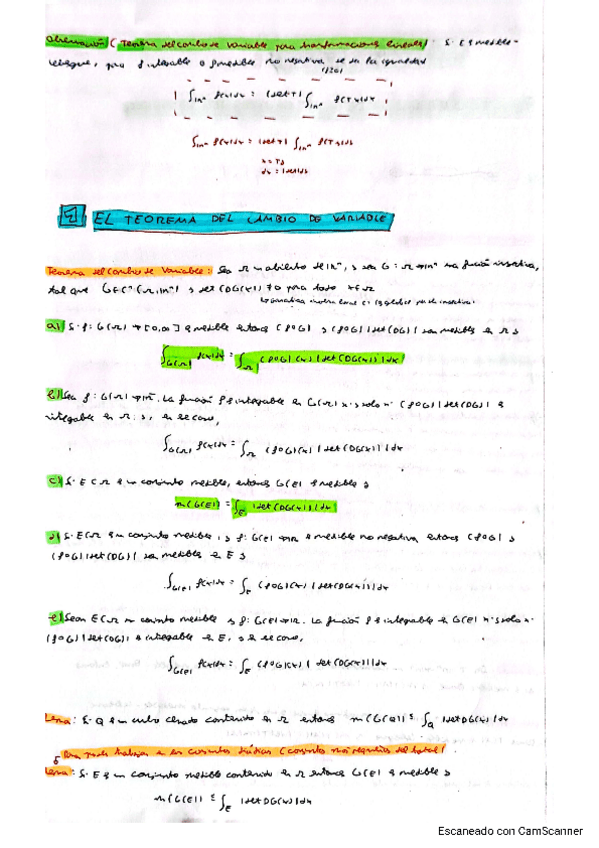 Observación (Teorema del cambio de variable para transformaciones lineales): Si E es medible-
Lebesgue, para f integrable o f medible no negativa se da la igualdad
∫ℝⁿ f(x)dx = |det T| ∫ℝⁿ f(Tx)dx
∫ℝⁿ f(x)dx = |det T| ∫ℝⁿ f(Tx)dx
4 EL TEOREMA DEL CAMBIO DE VARIABLE
Teorema del cambio de Variable: Sea Ω un abierto de ℝⁿ, y sea G: Ω→ℝⁿ una función inyectiva,
tal que G∈C¹(Ω,ℝⁿ) y det(DG(x)) ≠ 0 para todo x∈Ω
a) Si f: G(Ω)→[0,∞] es medible entonces (f∘G) y (f∘G)|det(DG)| son medibles en Ω y
∫G(Ω) f(x)dx = ∫Ω (f∘G)(x) |det(DG(x))| dx
b) Sea f: G(Ω)→ℝ. La función f es integrable en G(Ω) si y solo si (f∘G)|det(DG)| es
integrable en Ω y, en ese caso,
∫G(Ω) f(x)dx = ∫Ω (f∘G)(x) |det(DG(x))| dx
c) Si E⊂Ω es un conjunto medible, entonces G(E) es medible y
m(G(E)) = ∫E |det(DG(x))| dx
d) Si E⊂Ω es un conjunto medible, y f: G(E)→ℝ es medible no negativa entonces (f∘G) y
(f∘G)|det(DG)| son medibles en E y
∫G(E) f(x)dx = ∫E (f∘G)(x) |det(DG(x))| dx
e) Sean E⊂Ω un conjunto medible y f: G(E)→ℝ. La función f es integrable en G(E) si y solo si
(f∘G)|det(DG)| es integrable en E, y en ese caso,
∫G(E) f(x)dx = ∫E (f∘G)(x) |det(DG(x))| dx
Lema: Si Q es un cubo cerrado contenido en Ω entonces m(G(Q)) ≤ ∫Q |det DG(x)| dx
Lema: Si E es un conjunto medible contenido en Ω entonces G(E) es medible y
m(G(E)) ≤ ∫E |det DG(x)| dx
Escaneado con CamScanner